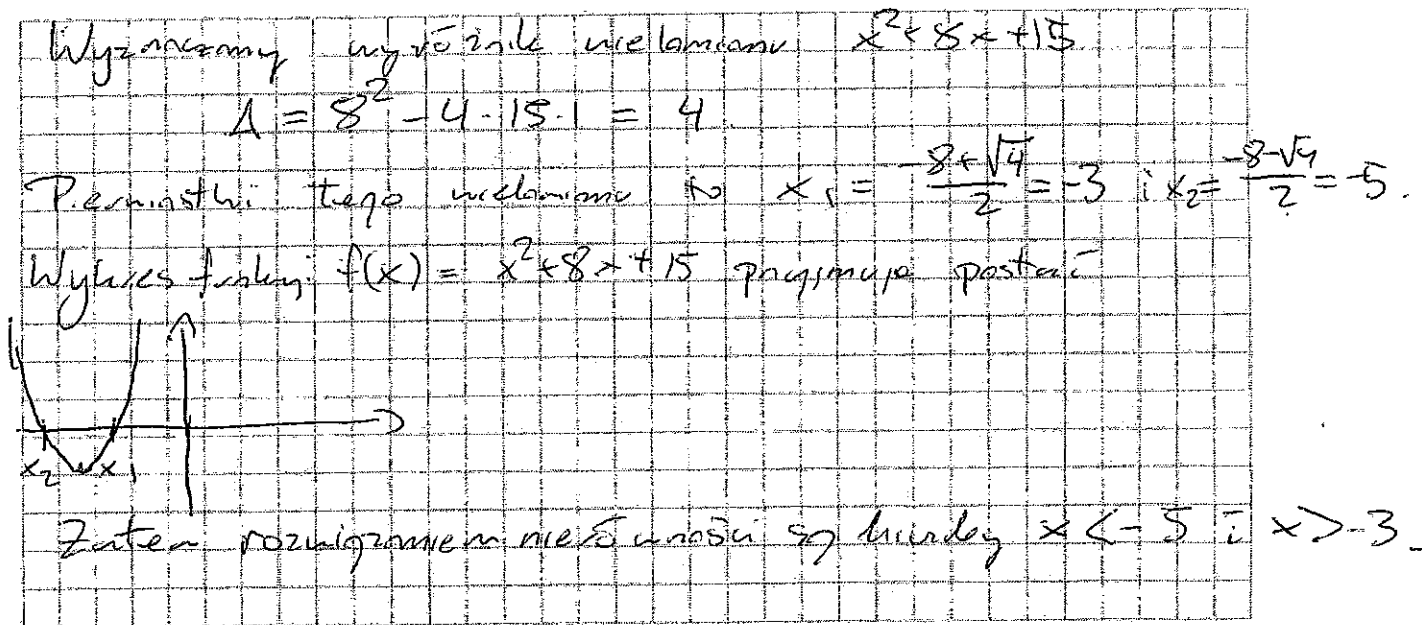 Wyznaczmy wyróżnik wielomianu x²+8x+15
Δ = 8² - 4·15·1 = 4.
Pierwiastki tego wielomianu to x₁ = (-8+√4)/2 = -3 i x₂ = (-8-√4)/2 = -5.
Wykres funkcji f(x) = x²+8x+15 przyjmuje postać
x₂ x₁
Zatem rozwiązaniem nierówności są x < -5 i x > -3.